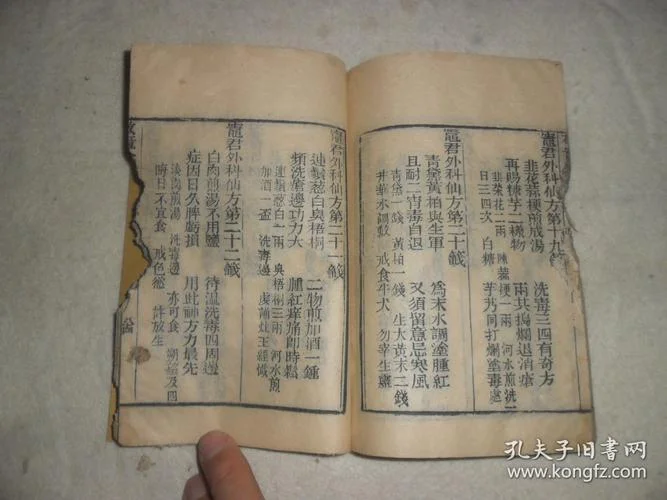 竈君外科仙方第十九籤
韭花蒜梗煎成湯　洗毒三四有奇方
再賜糖芋二樣物　兩共搗爛退消瘡
韭菜花二兩　陳蒜梗一兩　河水煎洗一
日三四次　白糖　芋艿同打爛塗毒處
竈君外科仙方第二十籤
青黛黃柏與生軍　為末水調塗腫紅
且耐二宵毒自退　又須留意忌寒風
青黛一錢　黃柏一錢　生大黃末二錢
井華水調敷　戒食牛犬　勿宰生靈
竈君外科仙方第二十一籤
連鬚葱白與梧桐　二物煎加酒一鍾
頻洗瘡邊功力大　腫紅痒痛即時鬆
連鬚葱白一兩　梧桐三兩　河水煎
加酒一盃　洗毒邊　虔誦灶王經懺
竈君外科仙方第二十二籤
白肉煎湯不用鹽　待溫洗毒四周邊
症因日久脾虧損　用此神方力最先
淡肉煎湯　洗毒邊　亦可食　朔望及四
晦日不宜食　戒色慾　許放生
孔夫子旧书网
www.kongfz.com